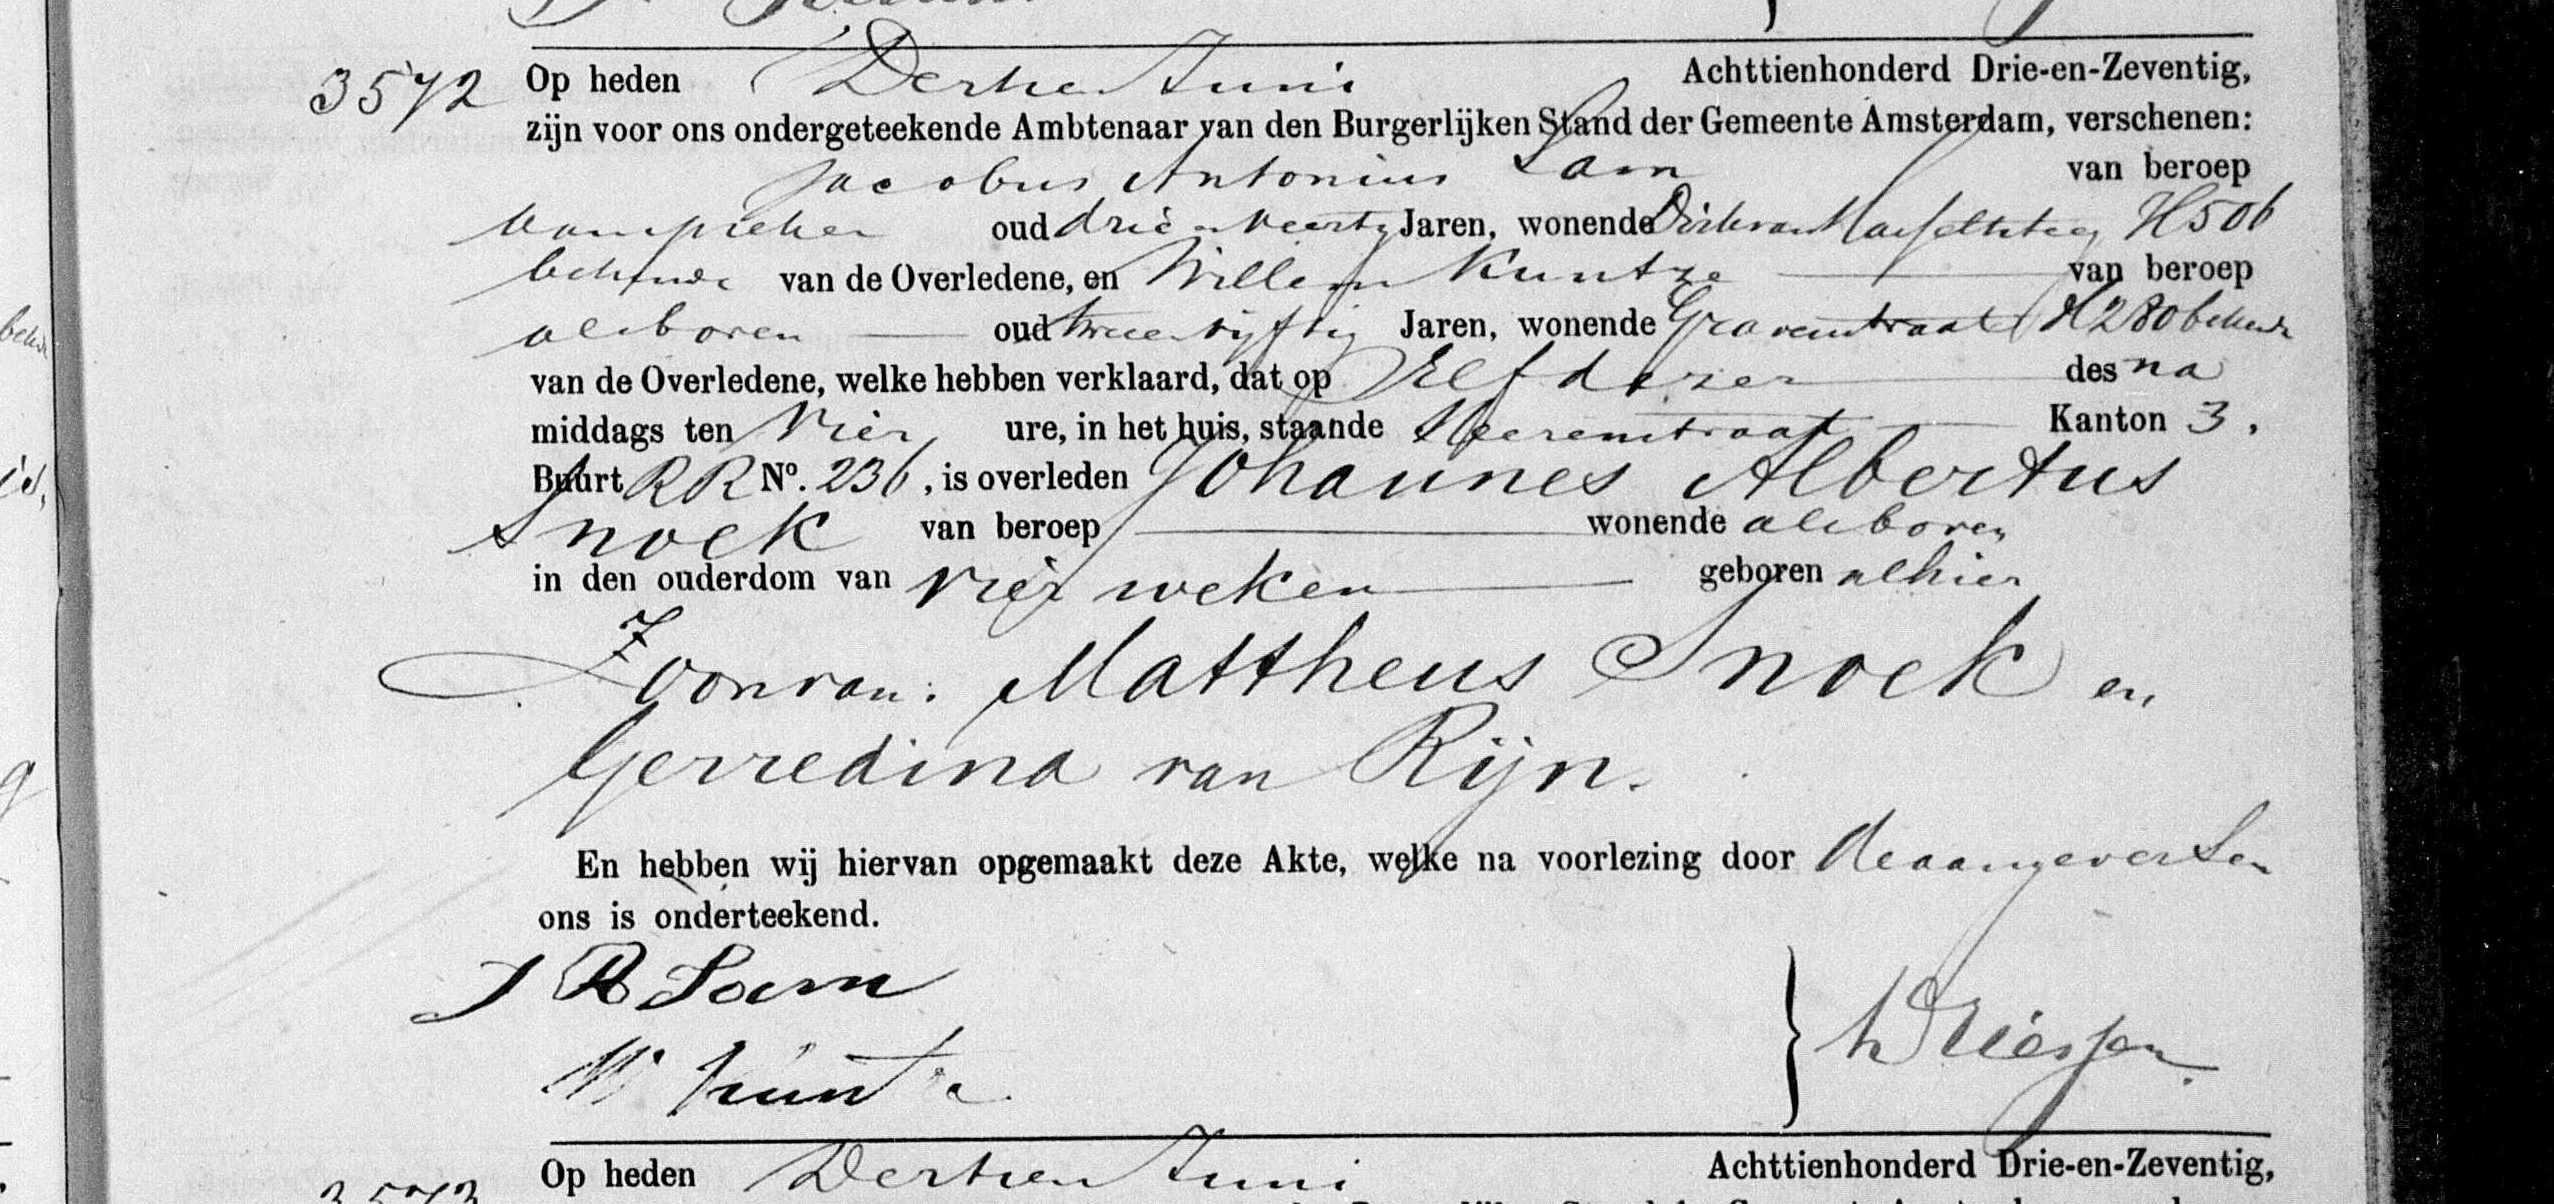 3572 Op heden Dertien Juni Achttienhonderd Drie-en-Zeventig,
zijn voor ons ondergeteekende Ambtenaar van den Burgerlijken Stand der Gemeente Amsterdam, verschenen:
Jacobus Antonius Lam van beroep
oud drie en veertig Jaren, wonende Dirk van Hasseltsteeg H506
bekende van de Overledene, en Willem Kuntze van beroep
als boven oud twee en vijftig Jaren, wonende Gravenstraat H280 bekende
van de Overledene, welke hebben verklaard, dat op Elf dezer des na
middags ten Vier ure, in het huis, staande Heerenstraat Kanton 3.
Buurt RR No. 236, is overleden Johannes Albertus
Snoek van beroep wonende als boven
in den ouderdom van vier weken geboren alhier
Zoon van: Mattheus Snoek en
Gerredina van Rijn.
En hebben wij hiervan opgemaakt deze Akte, welke na voorlezing door de aangevers en
ons is onderteekend.
J A Lam
W. Kuntze
Op heden Dertien Juni Achttienhonderd Drie-en-Zeventig,
3573